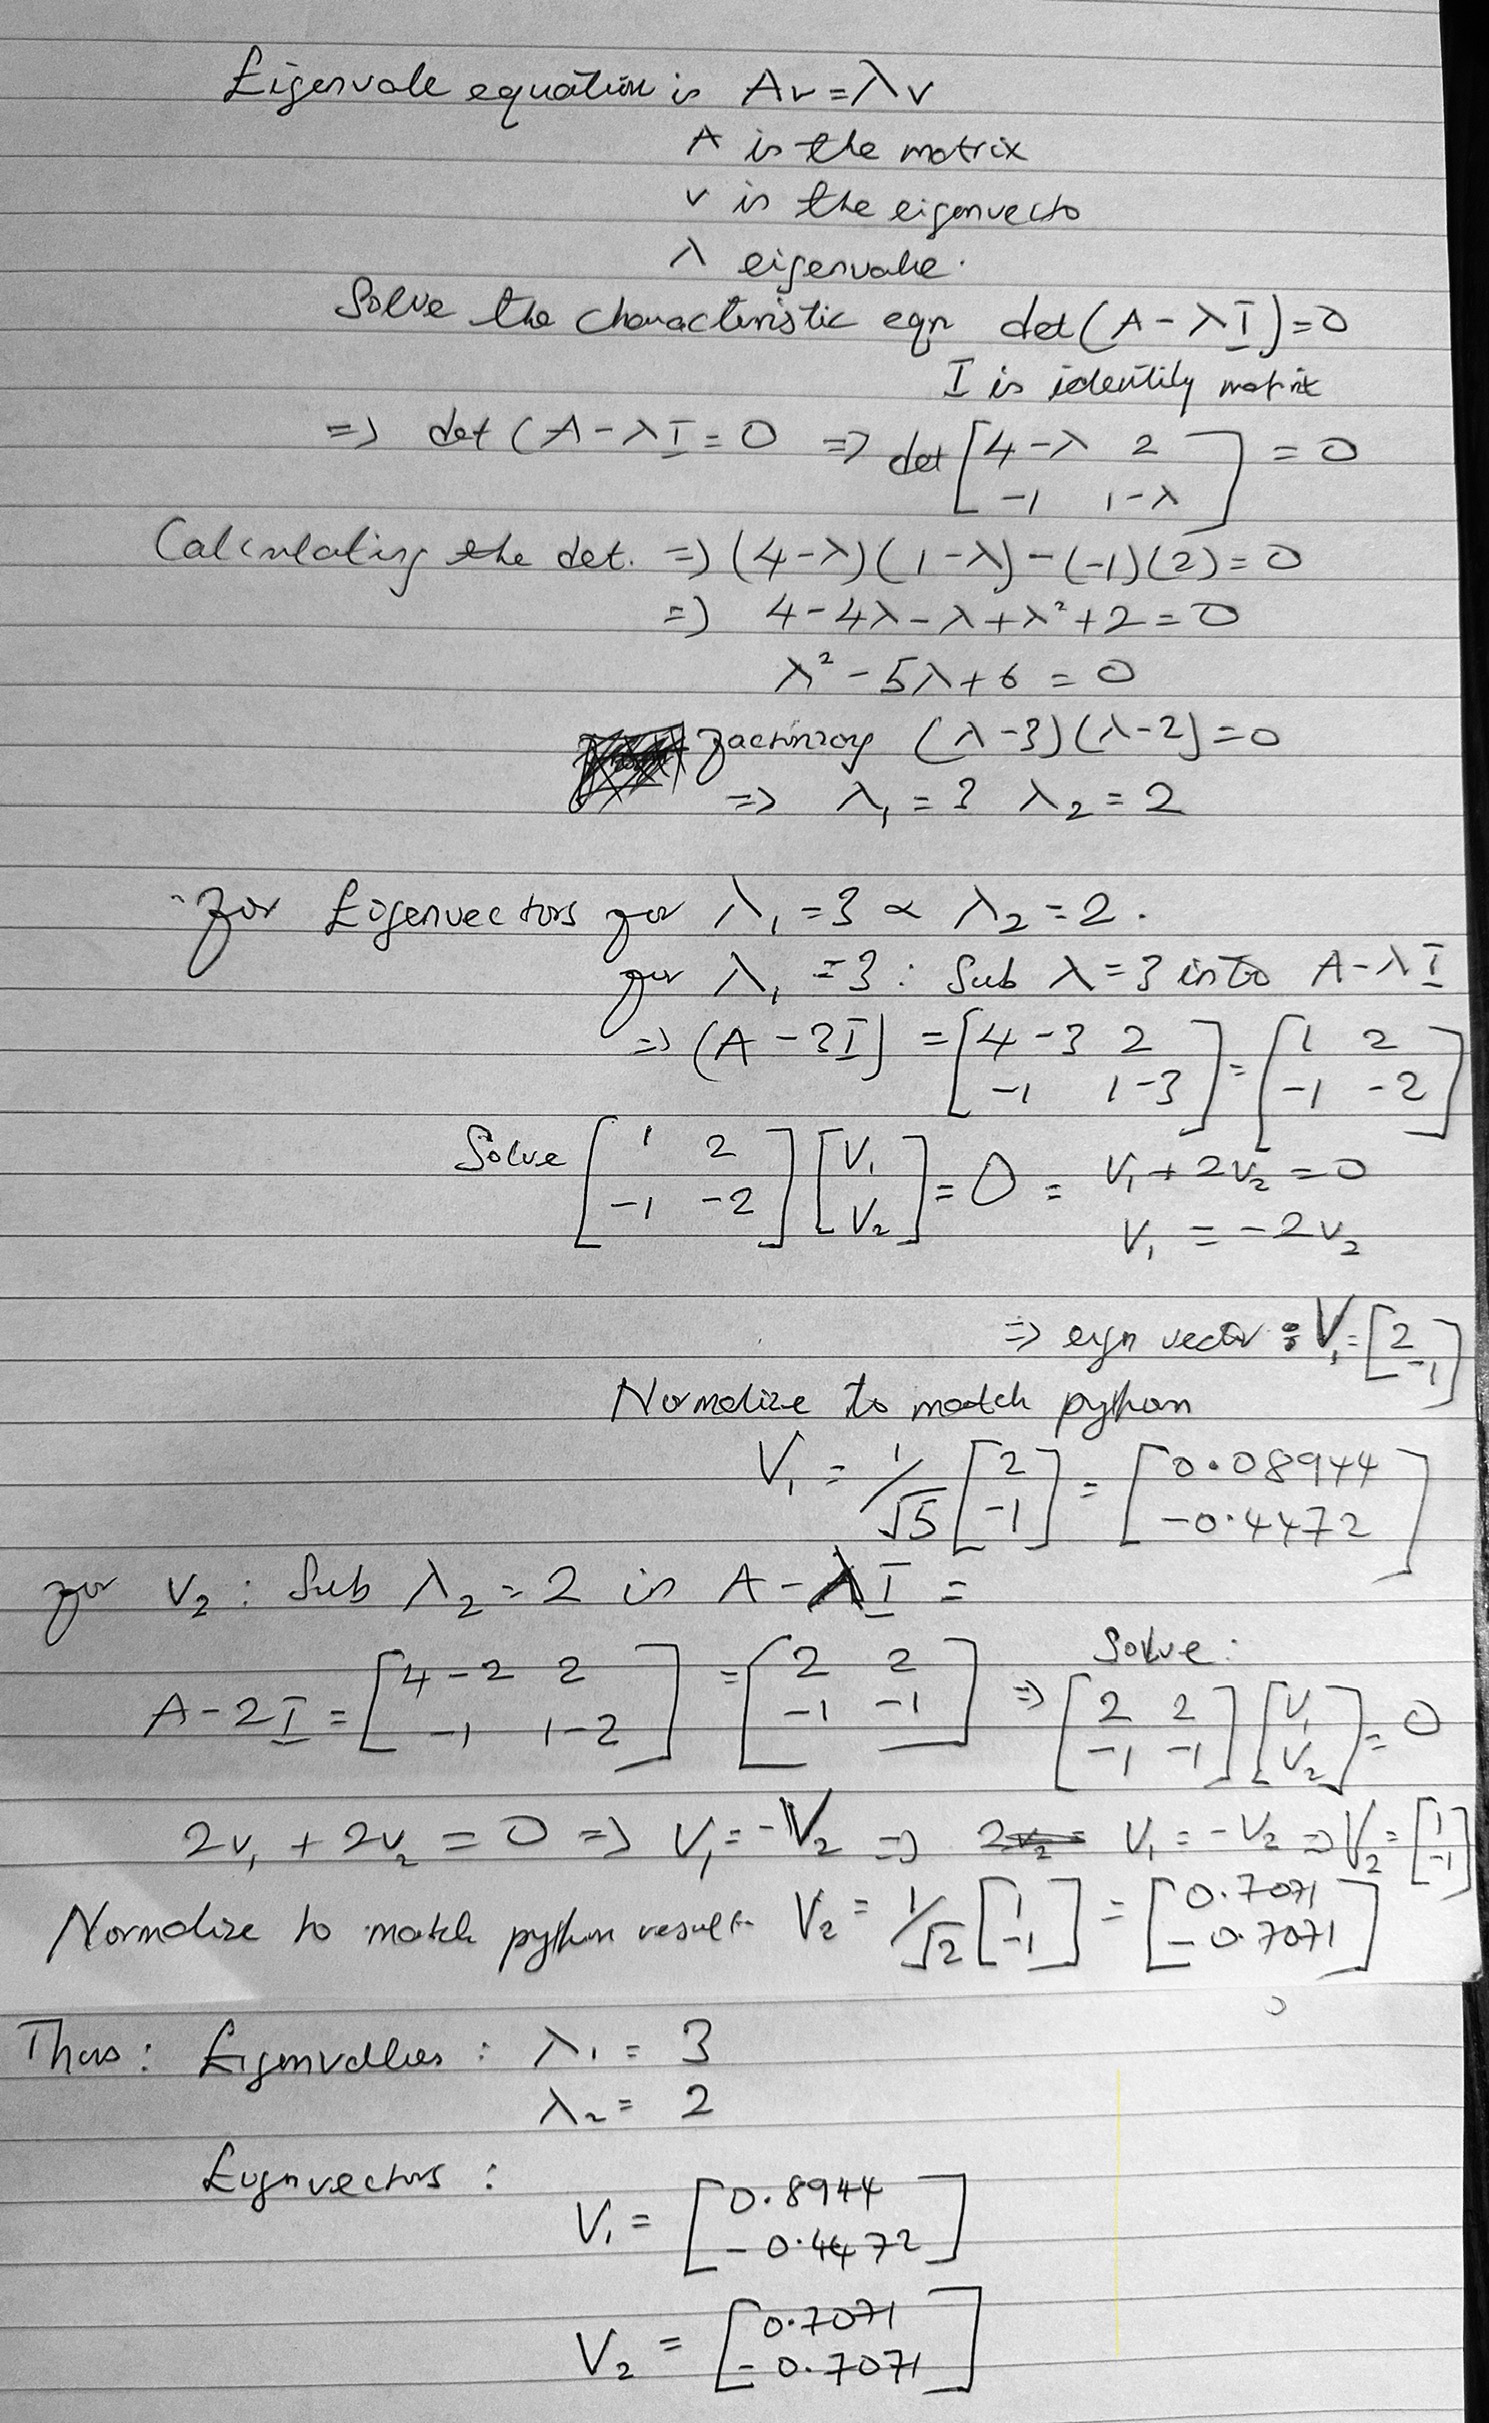 Eigenvale equation is Av=λv
A is the matrix
v is the eigenvecto
λ eigenvalue.
Solve the characteristic eqn det(A-λI)=0
I is identity matrix
=> det (A-λI=0 => det [4-λ 2
-1 1-λ] = 0
Calculating the det. => (4-λ)(1-λ)-(-1)(2)=0
=> 4-4λ-λ+λ²+2=0
λ²-5λ+6=0
(λ-3)(λ-2)=0
=> λ₁=3 λ₂=2
For Eigenvectors for λ₁=3 & λ₂=2.
for λ₁=3: Sub λ=3 into A-λI
=> (A-3I) = [4-3 2
-1 1-3] = [1 2
-1 -2]
Solve [1 2
-1 -2] [V₁
V₂] = 0 = V₁+2V₂=0
V₁=-2V₂
=> eign vector : V₁=[2
-1]
Normalize to match python
V₁ = 1/√5 [2
-1] = [0.08944
-0.4472]
for V₂: Sub λ₂=2 in A-λI =
A-2I = [4-2 2
-1 1-2] = [2 2
-1 -1] => Solve: [2 2
-1 -1] [V₁
V₂] = 0
2V₁+2V₂=0 => V₁=-V₂ => V₁=-V₂ => V₂=[1
-1]
Normalize to match python result V₂ = 1/√2 [1
-1] = [0.7071
-0.7071]
Thus: Eigenvalues: λ₁ = 3
λ₂ = 2
Eignvectors:
V₁ = [0.8944
-0.4472]
V₂ = [0.7071
-0.7071]